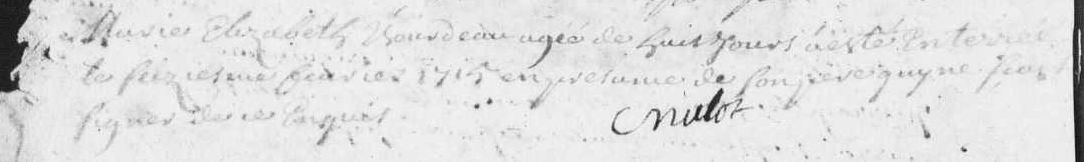 Marie Elizabeth Bourdeau agée de huit jours a esté Enterrée
le seiziesme febvrier 1715 en presance de son pere qui ne scait
signer de ce Enquis
Mulot